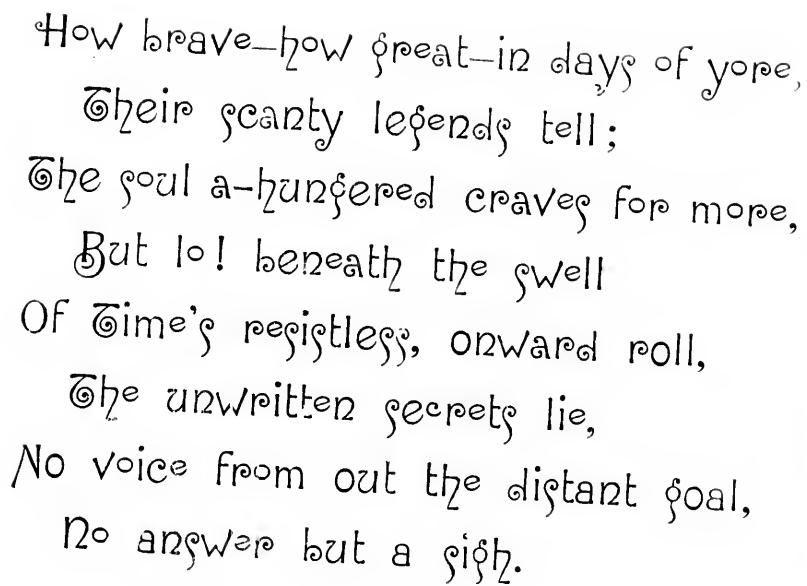 How brave—how great—in days of yore,
Their scanty legends tell;
The soul a-hungered craves for more,
But lo! beneath the swell
Of Time's resistless, onward roll,
The unwritten secrets lie,
No voice from out the distant goal,
No answer but a sigh.